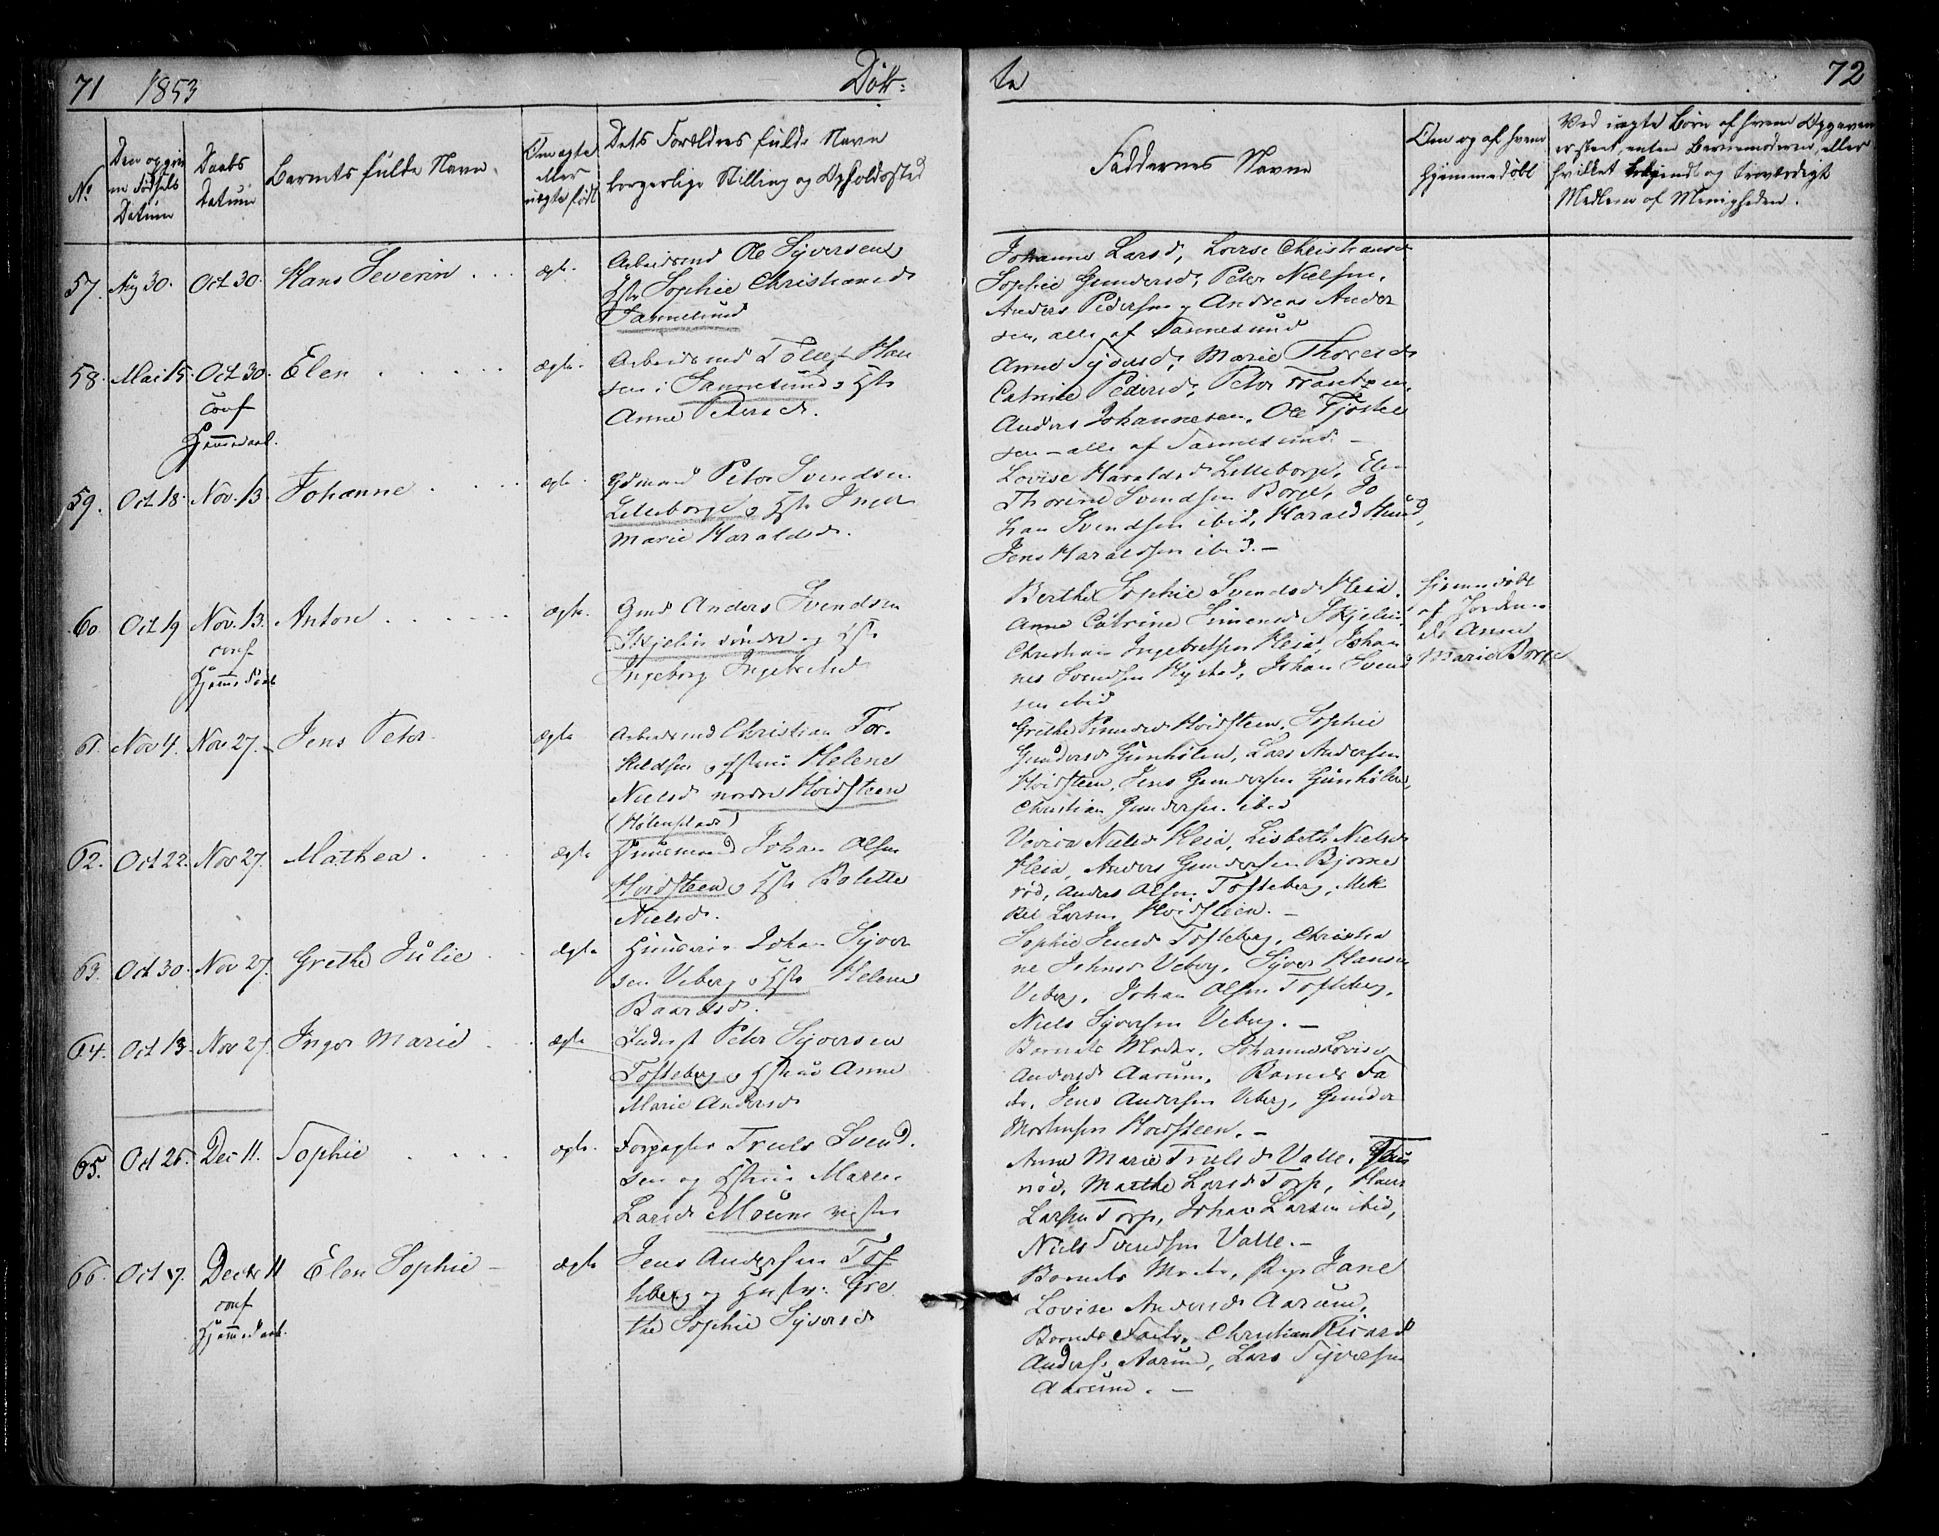 71 1853 Døb=
te 72
No
Den opgivne Fødsels Datum
Daabs Datum
Barnets fulde Navn.
Om ægte eller uægte født
Dets Forældres fulde Navn borgerlige Stilling og Opholdssted
Faddernes Navne
Om og af hvem hjemmedøbt
Ved uægte Børn af hvem Opgaven er skeet, enten Barnemoderen, eller hvilket bekjendt og troværdigt Medlem af Menigheden.
57. Aug 30. Oct 30. Hans Severin . . . ægte.
Arbeidsmd Ole Syversen
Hstr Sophie Christiansd
Sannesund
Johanne Larsd, Lovise Christiansd
Sophie Gundersd, Peter Nielsen,
Anders Pedersen, Andreas Ander
sen, alle af Sannesund
58. Mai 15. Oct 30. Elen . . . . . ægte.
conf
Hjemmedaab.
Arbeidsmd Tollef Han
sen i Sannesund, Hstr
Anne Pedersd.
Anne Syversd, Marie Thoresd
Catrine Pedersd, Peter Frantzen,
Anders Johannesen, Ole
sen – alle af Sannesund. –
59. Oct 18. Nov. 13. Johanne . . . . ægte.
Gdmand Peter Svendsen
Lilleborge, Hstr Inger
Marie Haraldsd.
Lovise Haraldsd Lilleborge, Ele-
Thorine Svendsen Borge, Jo
han Svendsen ibid, Harald Hund,
Jens Haraldsen ibid. –
60. Oct 19 Nov. 13. Anton . . . . . . ægte.
conf
Hjemmedaab
Gmd Anders Svendsen
Skjelin søndre og Hstr
Ingeborg Ingebretsd
Berthe Sophie Svendsd Heia,
Anne Catrine Simensd Skjelin,
Christian Ingebretsen Heia, Johan
nes Svendsen Hystad, Johan Svend
sen ibid
hjemmedøbt
af Jorden-
de Anne
Marie Borge
61. Nov 4. Nov 27. – Jens Peter ægte
Arbeidsmd Christian Tor-
kildsen, Hstru Helene
Nielsd nordre Hvidsteen
(Holenplads)
Grethe Knudsd Hvidsteen, Sophie
Gundersd Gunholen, Lars Andersen
Hvidsteen, Jens Gundersen Gunholen,
Christian Gundersen ibid
62. Oct 22. Nov 27. Mathea . . ægte
Huusmand Johan Olsen
Hvidsteen, Hstr Bolette
Nielsd.
Nielsd Heia, Lisbeth Nielsd
Heia, Anders Gundersen Bjørne
rød, Andreas Olsen Tofteberg, Mik
kel Larsen Hvidsteen. –
63. Oct 30. Nov 27. Grethe Julie . . ægte
Johan Syver
sen Veberg, Hstr Helene
Baardsd.
Sophie Jensd Tofteberg, Christia
ne Johnsd Veberg, Syver Hansen
Veberg, Johan Olsen Tofteberg,
Niels Syversen Veberg. –
64. Oct 13. Nov 27. Inger Marie . . ægte
Inderst Peter Syversen
Tofteberg, Hstru Anne
Marie Andersd
Barnets Moder, Johanne Lovise
Andersd Aarum, Barnets Fa
der, Jens Andersen Veberg, Gunder
Mortensen Hvidsteen. –
65. Oct 25. Dec 11. Sophie . . . . ægte.
Forpagter Truls Svend-
sen og Hstru Maren
Larsd Moum vestre
Anne Marie Trulsd Valle,
rød, Marthe Larsd Torp, Hans
Larsen Torp, Johan Larsen ibid,
Niels Svendsen Valle. –
66. Oct 17. Decbr 11 Elen Sophie – ægte
conf
Hjemmedaab.
Jens Andersen Tof
teberg og Hustru Gre
the Sophie Syversd
Barnets Moder, Pige Jane
Lovise Andersd Aarum,
Barnets Fader, Christian Ricard
Anders. Aarum, Lars Syversen
Aarum. –